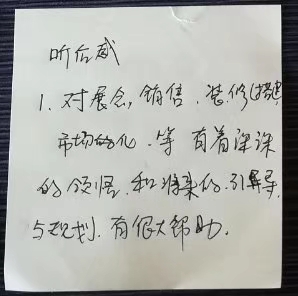 听后感
1. 对展念,销售、装修
市场的化、等 有着深深
的领悟,和将来的引导
与规划,有很大帮助.